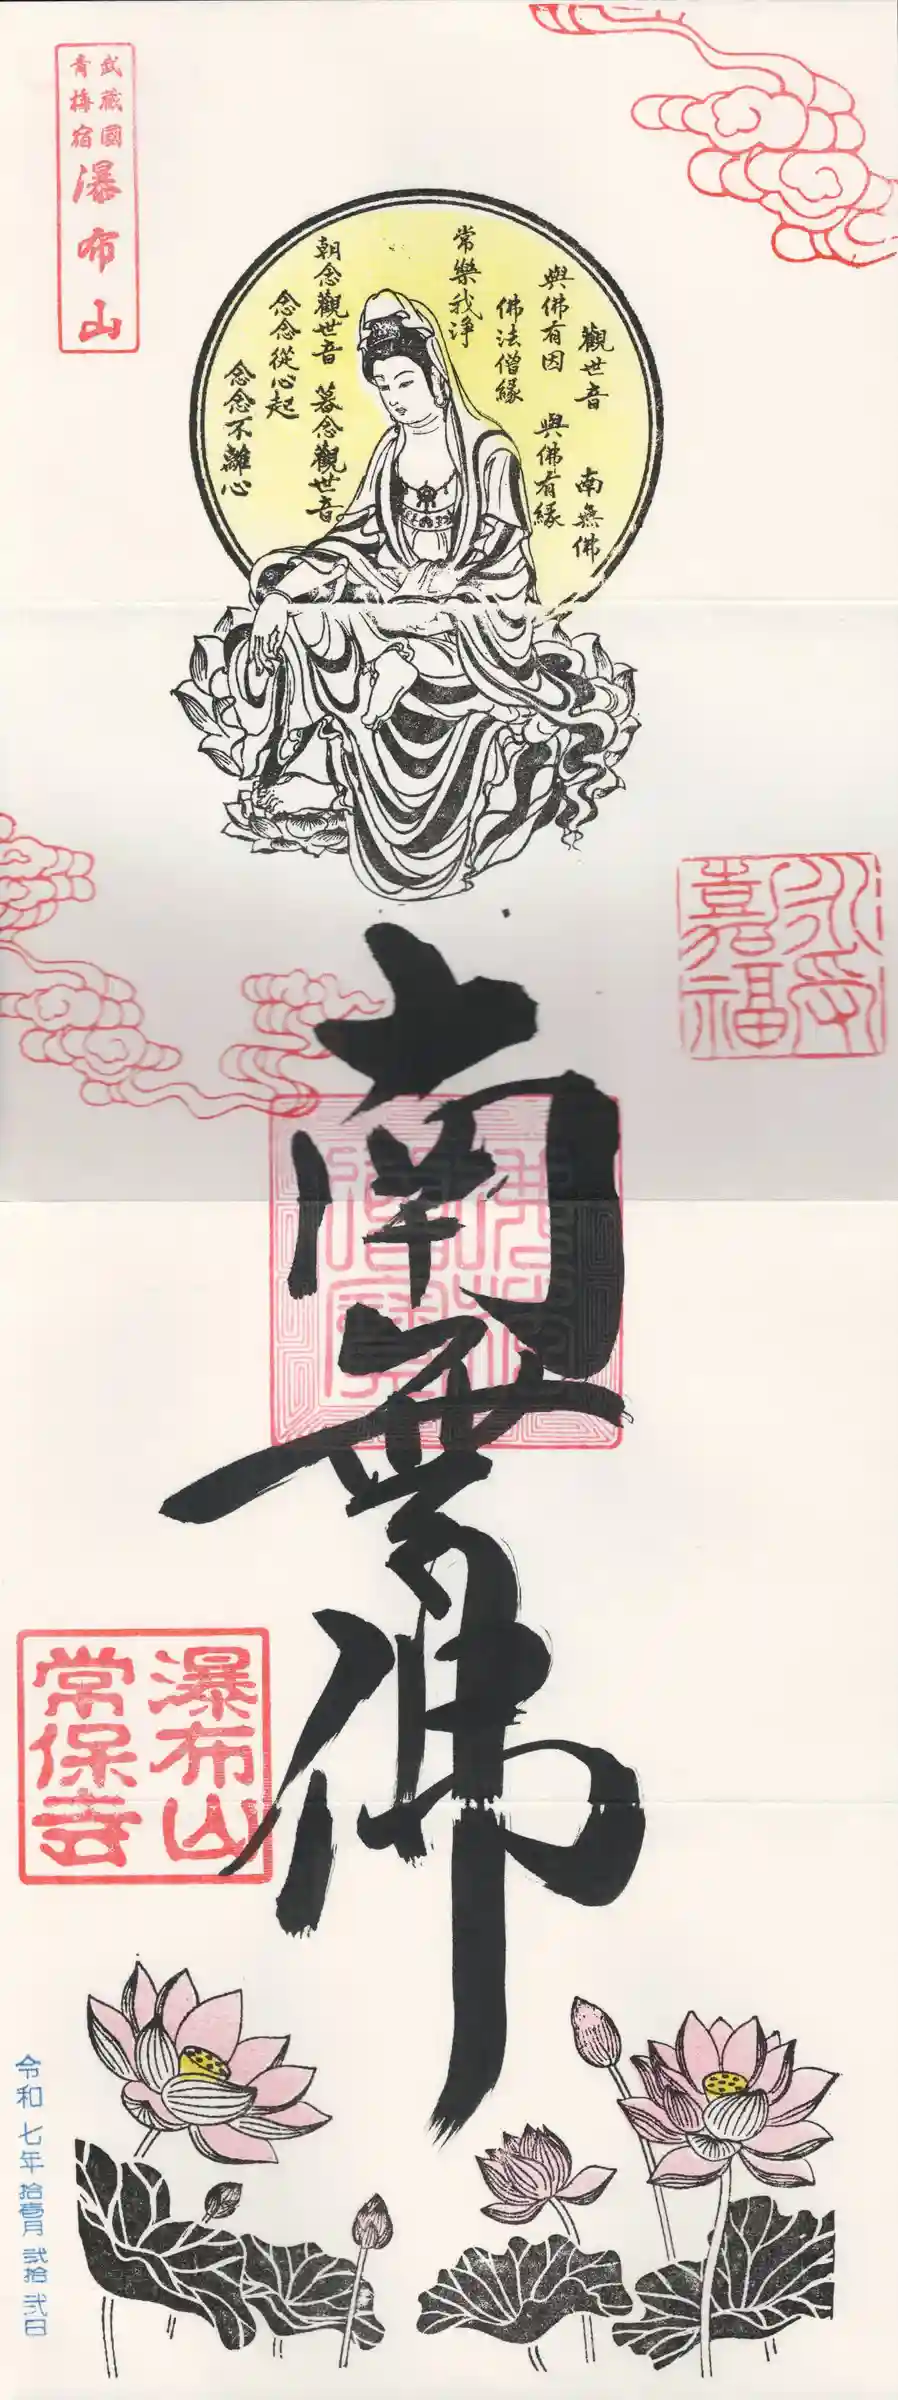 武蔵國
青梅宿
瀑布山
觀世音 南無佛
與佛有因 與佛有縁
佛法僧縁
常樂我淨
朝念觀世音 暮念觀世音
念念從心起
念念不離心
永受
嘉福
佛法
僧寳
南無佛
瀑布山
常保寺
令和七年拾壱月弐拾弐日